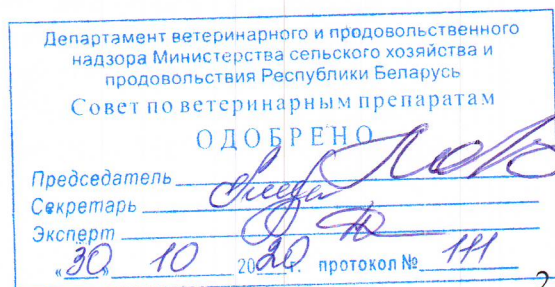 Департамент ветеринарного и продовольственного
надзора Министерства сельского хозяйства и
продовольствия Республики Беларусь
Совет по ветеринарным препаратам
ОДОБРЕНО
Председатель
Секретарь
Эксперт
«30» 10 2020г. протокол № 111
2